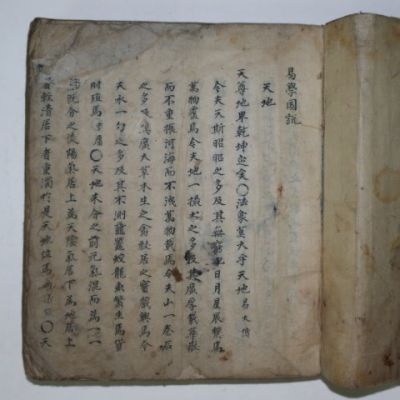 易學圖說
天地
天尊地卑乾坤定矣○法象莫大乎天地易大傳
今夫天斯昭昭之多及其無窮也日月星辰繫焉
萬物覆焉今夫地一撮土之多及其廣厚載華嶽
而不重振河海而不洩萬物載焉今夫山一卷石
之多及其廣大草木生之禽獸居之寶藏興焉今
夫水一勺之多及其不測黿鼉蛟龍魚鱉生焉貨
財殖焉中庸○天地未分之前元氣混而爲一一
既分之後陽氣居上爲天陰氣居下爲地居上
者輕清居下者重濁於是天地位焉○天